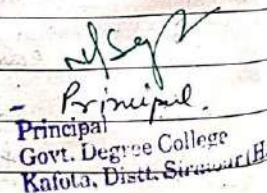 Principal.
Principal
Govt. Degree College
Kafota, Distt. Sirmour (H.